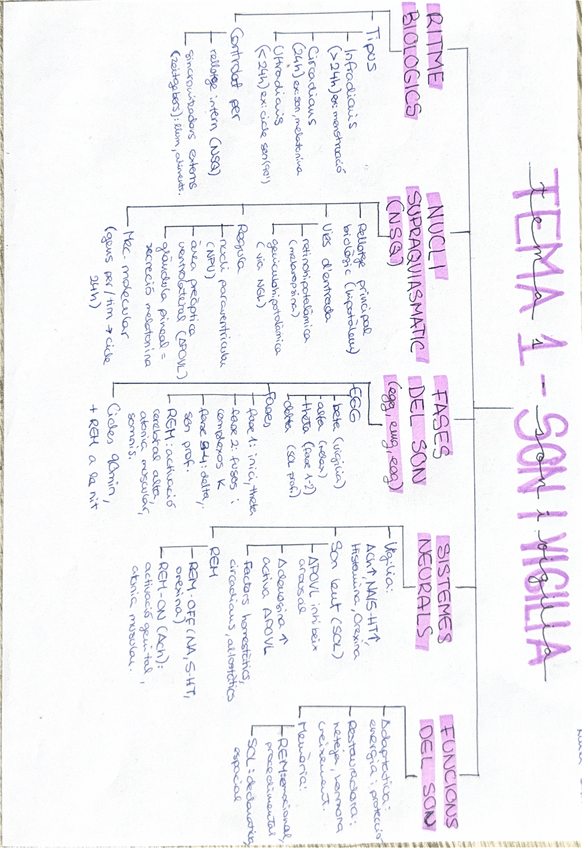 TEMA 1 - SON I VIGILIA
tema 1 - son i vigilia
RITME
BIOLOGICS
Tipus
Infradians
(>24h) ex: menstruació
Circadians
(24h) ex: son, melatonina
Ultradians
(<24h) ex: cicle son (90')
Controlat per
rellotge intern (NSQ)
sincronitzadors externs
(zeitgebers): llum, aliments.
NUCLI
SUPRAQUIASMATIC
(NSQ)
Rellotge principal
biològic (hipotàlem)
Vies d'entrada
retinohipotalàmica
(melanopsina)
geniculohipotalàmica
(via NGL)
Regula
nucli paraventricular
(NPV)
àrea preòptica
ventrolateral (APOVL)
glàndula pineal =
secreció melatonina
Mec. molecular
(gens per/tim → cicle
24h)
FASES
DEL SON
(egg, emg, eog)
EGG
beta (vigília)
alfa (relax)
theta (fase 1-2)
delta (son prof)
Fases
fase 1: inici, theta
fase 2: fusos i
complexos K
fase 3-4: delta,
son prof.
REM: activació
cerebral alta,
atonia muscular,
somnis.
Cicles 90min,
+ REM a la nit
SISTEMES
NEURALS
Vigília:
Ach↑ NA/5-HT↑,
Histamina, Orexina
Son lent (SOL)
APOVL inhibeix
arousal
Adenosina ↑
activa APOVL
Factors homeostàtics,
circadians, al·lostàtics
REM
REM-OFF (NA, 5-HT,
orexina)
REM-ON (Ach):
activació genital,
atonia muscular.
FUNCIONS
DEL SON
Adaptativa:
energia, protecció
Restauradora:
neteja, hormona
creixement.
Memòria:
REM: emocional,
procedimental
SOL: declarativa,
espacial